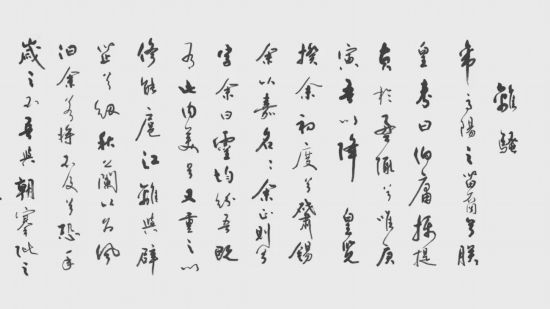 離騷
帝高陽之苗裔兮朕
皇考曰伯庸攝提
貞於孟陬兮唯庚
寅吾以降 皇覽
揆余初度兮肇錫
余以嘉名〻余正則兮
字余曰靈均紛吾既
有此内美兮又重之以
修能扈江離與辟
芷兮紉秋蘭以為佩
汩余若將不及兮恐年
歲之不吾與朝搴阰之